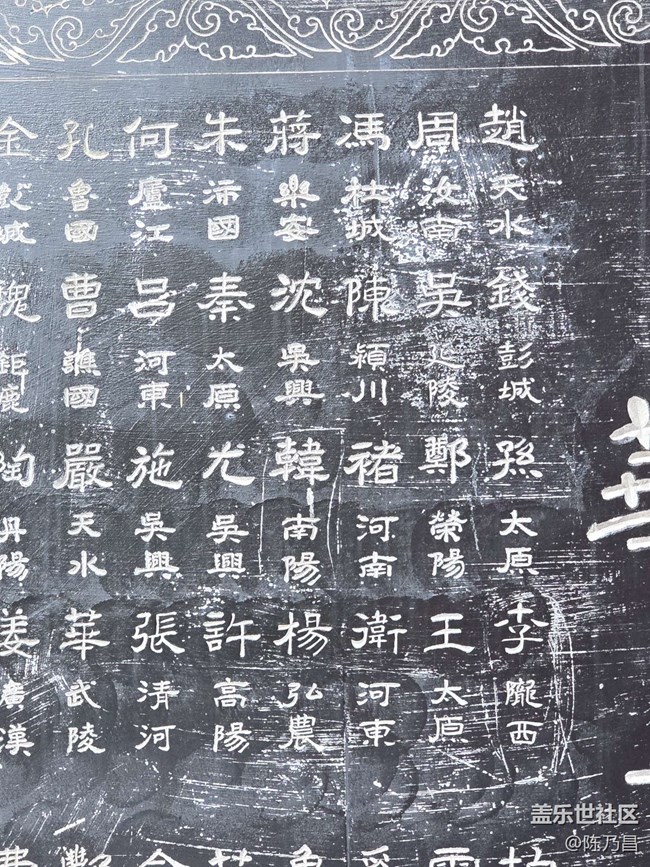 華
趙天水錢彭城孫太原李隴西
周汝南吳延陵鄭榮陽王太原
馮杜城陳潁川褚河南衛河東
蔣樂安沈吳興韓南陽楊弘農
朱沛國秦太原尤吳興許高陽
何廬江呂河東施吳興張清河
孔魯國曹譙國嚴天水華武陵
金彭城魏鉅鹿陶丹陽姜廣漢
盖乐世社区
@陈乃昌